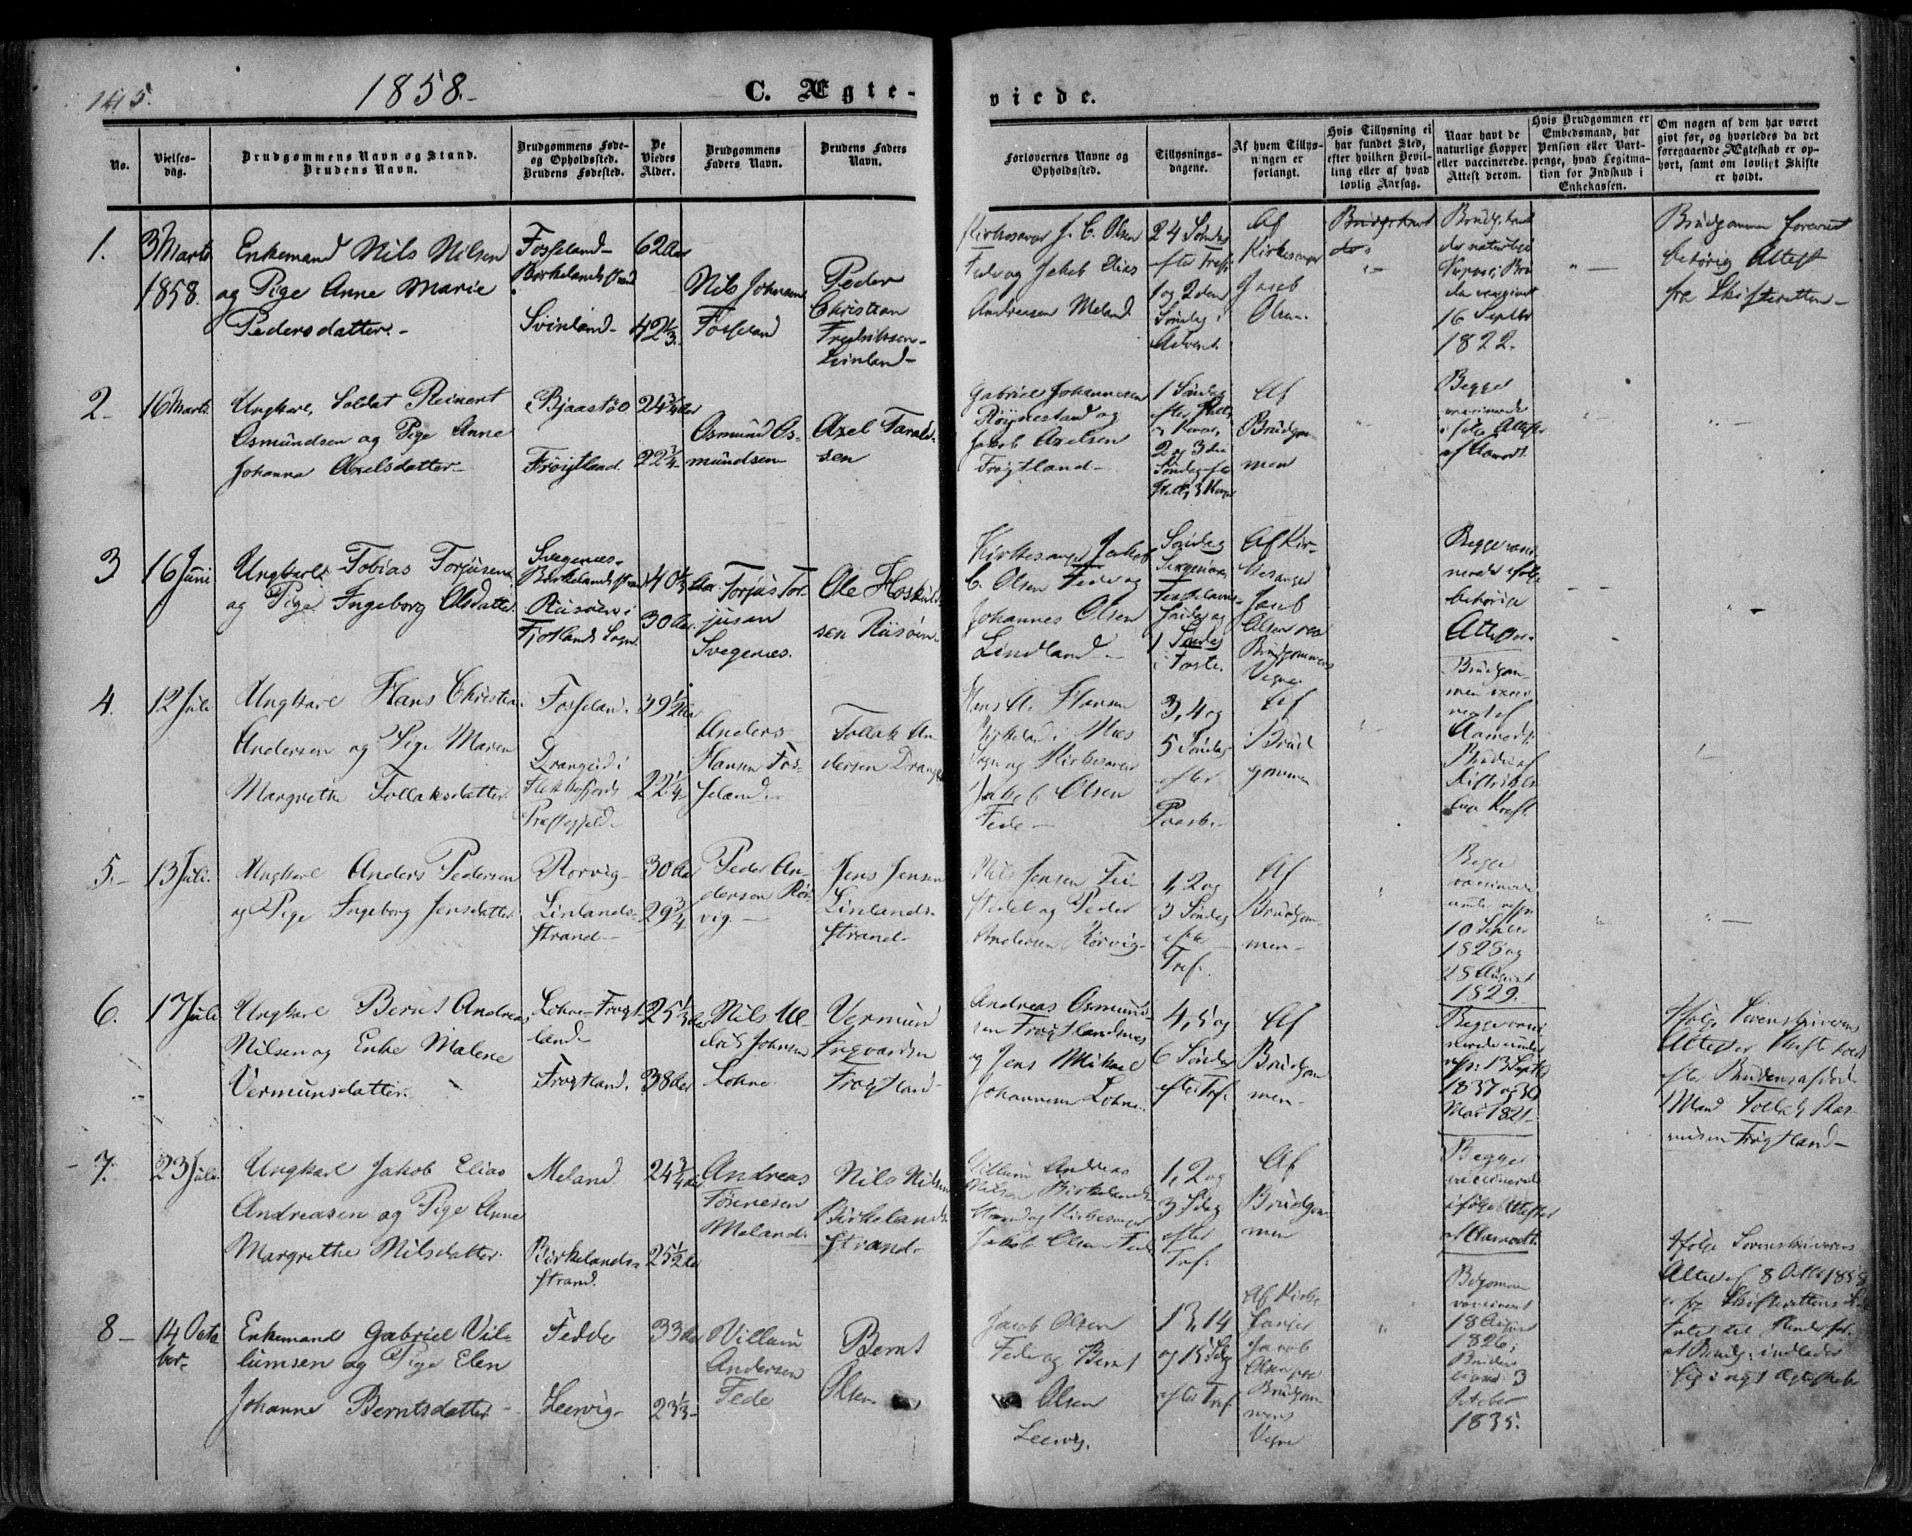 145.
1858.-
C. Ægte-
viede.
No.
Vielses-
dag.
Brudgommens Navn og Stand.
Brudens Navn.
Brudgommens Føde-
og Opholdssted.
Brudens Fødested.
De
Viedes
Alder.
Brudgommens
Faders Navn.
Brudens Faders
Navn.
Forlovernes Navne og
Opholdssted.
Tillysnings-
dagene.
Af hvem Tillys-
ningen er
forlangt.
Hvis Tillysning ei
har fundet Sted,
efter hvilken Bevil-
ling eller af hvad
lovlig Aarsag.
Naar havt de
naturlige Kopper
eller vaccinerede.
Attest derom.
Hvis Brudgommen er
Embedsmand, har
Pension eller Vart-
penge, hvad Legitma-
tion for Indskud i
Enkekassen.
Om nogen af dem har været
givt før, og hvorledes da det
foregaaende Ægteskab er op-
hørt, samt om lovligt Skifte
er holdt.
1.
3 Marts
1858.
Enkemand Nils Nilsen
og Pige Anne Marie
Pedersdatter.-
Fosseland-
Birkelandsstrand
Svinland-
62 Aar
42 1/3.
Nils Johnsen
Fosseland
Peder
Christian
Fredriksen-
Kirkesanger J. C. Olsen
Fede og Jakob Elias
Andreasen Meland
24 Søndag
efter Tref.
1 og 2 den
Søndag i
Advent.
Af
Kirkesanger
Jacob
Olsen.
16 Septbr
1822.
Brudgommen forevist
behørig Attest
fra Skifteretten-
2-
16 Marts
Ungkarl, Soldat Reinert
Osmundsen og Pige Anne
Johanna Axelsdatter-
Bjaastøe
Frøigtland.
24 3/4 Aar
22 3/4-
Osmund Os-
mundsen
Axel Tarald-
sen
Gabriel Johannesen
Røynestand og
Jakob Axelsen
Frøgtland-
1 Søndag
efter
2 og 3 die
Søndag efter
Af
Brudgom-
men
Begge
vaccinerede
ifølge Attester
af Aamodt.
3
16 Juni
Ungkarl Tobias Torjusen
og Pige Ingeborg Olsdatter
Svegenæs-
Birkelandsstrand
Riisøen i
Fjotlands Sogn.
40 1/3 Aar
30 Aar.
Torjus Tor-
jusen
Svegenæs.
Ole Hoskuld-
sen Riisøen.
Kirkesanger Jakob
C. Olsen Fede og
Johannes Olsen
Lindland-
Søndag
Fastelavns-
søndag og
1 Søndag
i Faste.
Af Kir-
kesanger
Jacob
Olsen paa
Brudgommens
Vegne
Begge vacci-
nerede ifølge
behørige
Attester.
4.
12 Juli
Ungkarl Hans Christian
Andersen og Pige Maren
Margrethe Tollaksdatter.
Fosseland.
Drangeid i
Flekkefjords
Præstegjeld-
39 1/2 Aar
22 1/4-
Anders
Hansen Fos-
seland.-
Tollak An-
dersen Drange
Hans A. Hansen
Birkeland i Næs
Sogn og Kirkesanger
Jakob Olsen
Fede-
3, 4 og
5 Søndag
efter
Paaske.
Af
Brud
gommen
Brudgom-
men vacci-
neret af
Aamodt.
5.-
13 Juli.
Ungkarl Anders Pedersen
og Pige Ingeborg Jensdatter.
Rørvig-
Linlands-
strand-
30 Aar
29 3/4
Peder An-
dersen Rør-
vig.-
Jens Jensen
Linlands-
strand.
Nils Jensen Fei-
stedel og Peder
Andersen Rørvig-
1, 2 og
3 Søndag
efter
Tref.
Af
Brudgom-
men-
Begge
vaccinerede
under resp.
10 Septbr
1828 og
28 August
1829.
6.
17 Juli
Ungkarl Bernt Andreas
Nilsen og Enke Malene
Vermunsdatter.
Lohne-Frøgt-
land-
Frøgtland.
25 1/3 Aar
38 Aar
Nils Ul-
rik Johnsen
Lohne.
Vermund
Ingvardsen
Frøgtland-
Andreas Osmund-
sen Frøgtlandsnæs
og Jens Mikael
Johannesen Lohne.
4, 5 og
6 Søndag
efter Tref.
Af
Brudgom
men-
Begge vacci-
nerede under
resp. 13 Septb
1837 og 30
Mai 1821.
Ifølge Sorenskriverens
Attest er Skifte holdt
efter Brudens afdøde
Mand Tollak Ras-
musen Frøgtland-
7.
23 Juli
Ungkarl Jakob Elias
Andreasen og Pige Anne
Margrethe Nilsdatter.
Meland
Birkelands-
strand.
24 3/4 Aar
25 1/2 Aar
Andreas
Tønnesen
Meland.
Nils Nilsen
Birkelands-
strand.
Villum Andreas
Nilsen Birkelands-
strand og Kirkesanger
Jakob Olsen Fede
1, 2 og
3 Sdag
efter
Tref.
Af
Brudgom-
men
Begge
vaccinerede
ifølge Attester
af Aamodt.
8-
14 Octo
ber-
Enkemand Gabriel Vil-
lumsen og Pige Elen
Johanne Berntsdatter-
Fedde
Leervig-
33 Aar
23 1/3-
Villum
Andersen
Fede
Bernt
Olsen
Jacob Olsen
Fede og Bernt
Olsen
Leervig.
13, 14
og 15 Sdg
efter Tref.
Af Kirke
sanger
Jacob
Olsen paa
Brudgom-
mens
Vegne
Brudgommen
vaccineret
18 August
1826;
Bruden
3
October
1835.
Ifølge Sorenskriverens
Attest af 8 Octb 1858
er fra Skifterettens Side
Intet til Hinder for
at Brudg. indlader
sig i nyt Ægteskab